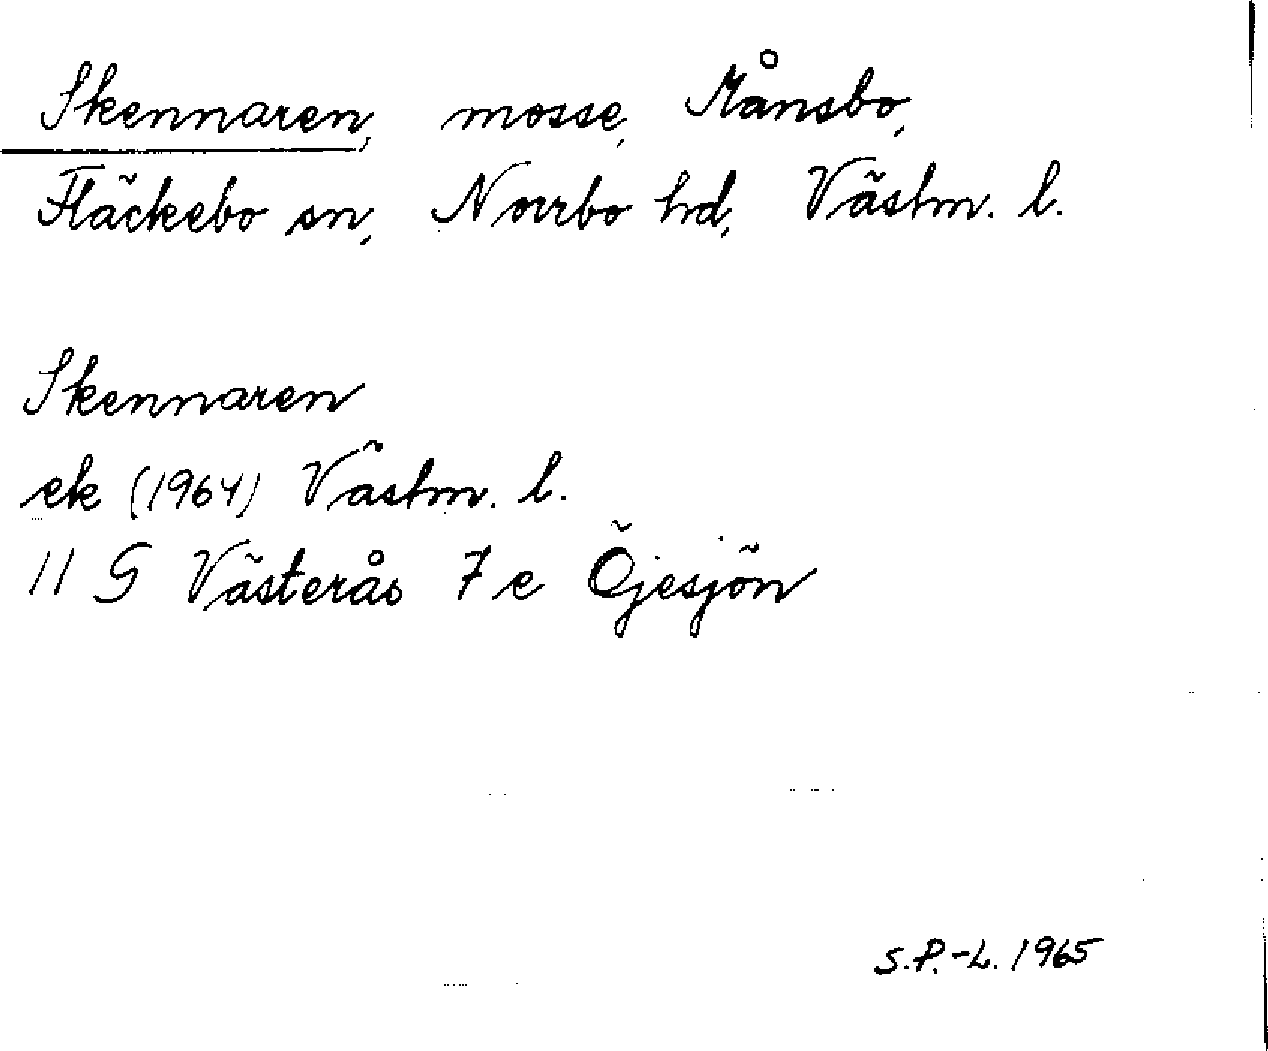 Skennaren, mosse, Månsbo,
Fläckebo sn, Norrbo hd, Västm. l.
Skennaren
ek (1964) Västm. l.
11 G Västerås 7e Öjesjön
S.P.-L. 1965